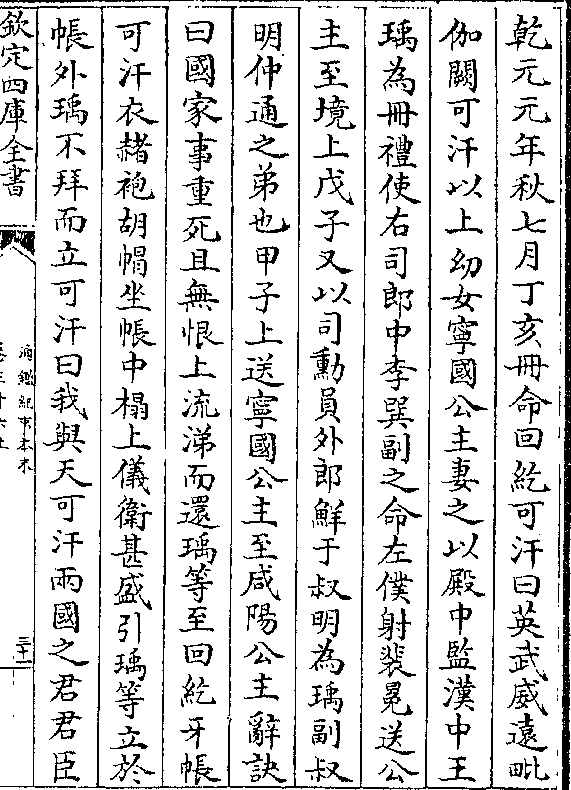 乾元元年秋七月丁亥冊命回紇可汗曰英武威遠毗
伽闕可汗以上幼女寧國公主妻之以殿中監漢中王
瑀為冊禮使右司郎中李巽副之命左僕射裴冕送公
主至境上戊子又以司勳員外郎鮮于叔明為瑀副叔
明仲通之弟也甲子上送寧國公主至咸陽公主辭訣
曰國家事重死且無恨上流涕而還瑀等至回紇牙帳
可汗衣赭袍胡帽坐帳中榻上儀衛甚盛引瑀等立於
帳外瑀不拜而立可汗曰我與天可汗兩國之君君臣
欽定四庫全書
通鑑紀事本末
三十一